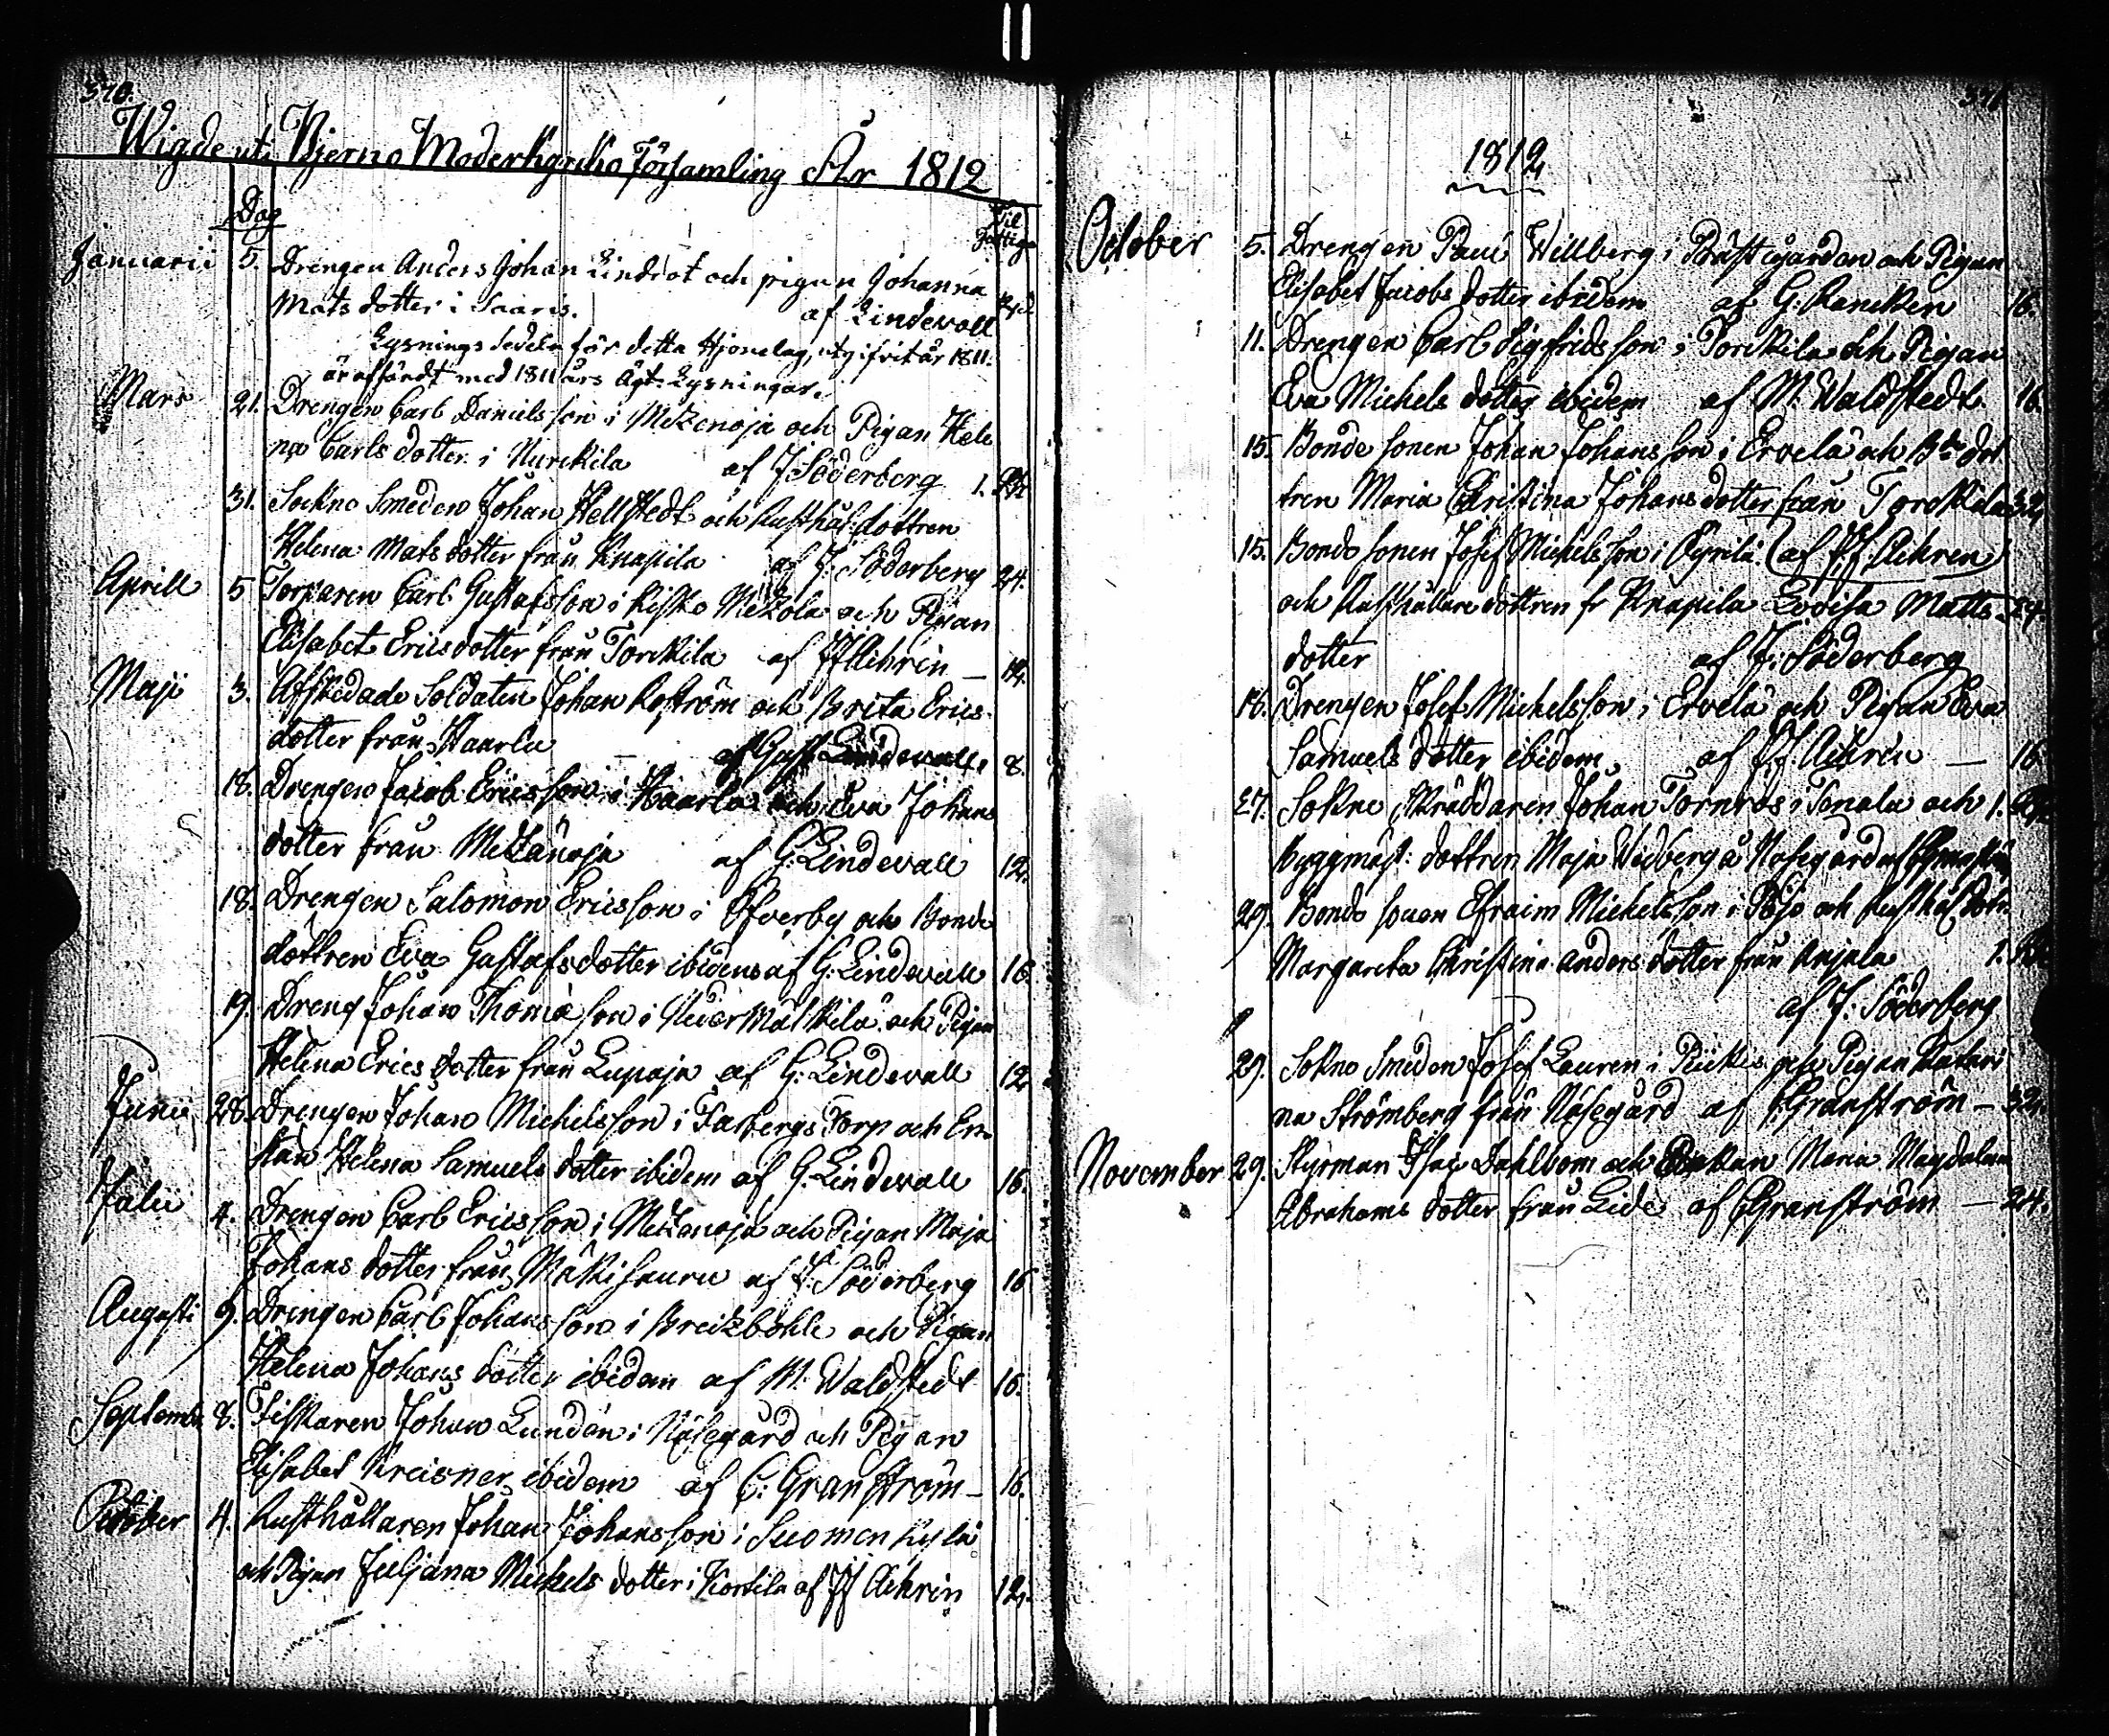 370.
Wigde uti Bjerno Moderkyrko Församling År 1812
Dag
Til Fattiga
Januarii 5. Drengen Anders Johan Lindrot och pigan Johanna
Mats dotter i Saaris. af Lindevall
Lysnings Sedeln för detta Hjonelag, utgifvit år 1811.
är affärdt med 1811 års Ägt. Lysningar.
Mars 21. Drengen Carl Danielsson i Metzenoja och Pigan Hele
na Carls dotter i Nurckila af J Söderberg 1.
31. Sockne Smeden Johan Hellstedt och Rusthål. dottren
Helena Mats dotter från Knapila af J: Söderberg 24.
Aprill 5 Torparen Carl Gustafsson i Kisko Metzola och Pigan
Elisabet Ericsdotter från Torckila af
Maji 3. Afskedade Soldaten Johan Roström och Brita Erics
dotter från Haarla af Gust. Lindevall. 8.
18. Drengen Jacob Ericsson i Haarla och Eva Johans
dotter från Metzänoja af G: Lindevall 12.
18. Drengen Salomon Ericsson i Öfverby och Bonde
dottren Eva Gustafsdotter ibidem af G: Lindevall 16.
19. Dreng Johan Thomasson i Mälkilä och Pigan
Helena Erics dotter från Lupaja af G: Lindevall 12
Junii 28. Drengen Johan Michelsson i Farbergs Torp och En
kan Helena Samuels dotter ibidem af G: Lindevall 16.
Julii 4. Drengen Carl Ericsson i Metzenoja och Pigan Maja
Johans dotter från Mäkisauru af J: Söderberg 16
Augusti 9. Drengen Carl Johansson i Breidböhle och Pigan
Helena Johans dotter ibidem af M: Waldstedt 16.
Septemb. 8. Fiskaren Johan Lundén i Näsegård och Pigan
Elisabet Kreisner ibidem af C: Granström – 16.
October 4. Rusthållaren Johan Johansson i Suomenkylä
och Pigan Juljana Michels dotter i Koskila af 12.
371
1812
October 5. Drengen Paul Willberg i Prästegården och Pigan
Elisabet Jacobs dotter ibidem af G: Rancken 16.
11. Drengen Carl Sigfridsson i Torckila och Pigan
Eva Michels dotter ibidem af M: Waldstedt. 16.
15. Bonde sonen Johan Johansson i Ervelä och Bde dot
tren Maria Christina Johansdotter från Torckila 32.
15. Bonde sonen Josef Michelsson i Kyrilä (af
och Rusthållare dottren fr Knapila Lovisa Matts 24.
dotter af J: Söderberg
16. Drengen Josef Michelsson i Ervelä och Pigan Eva
Samuels dotter ibidem af – 16
27. Sokne Skräddaren Johan Törnros i Tenala och 1.
Byggmäst: dottren Maja Widberg å Näsegård
29. Bonde sonen Efraim Michelsson i Pöjo och Rusthål. dottr.
Margareta Christina Anders dotter från Anjala 1.
af J: Söderberg
29. Sokne Smeden Josef Lauren i Piikkis och Pigan Kathari
na Strömberg från Näsegård af C: Granström – 32.
November 29. Styrman Isac Dahlbom och Enkan Maria Magdalena
Abrahams dotter från Lide af C Granström – 24.